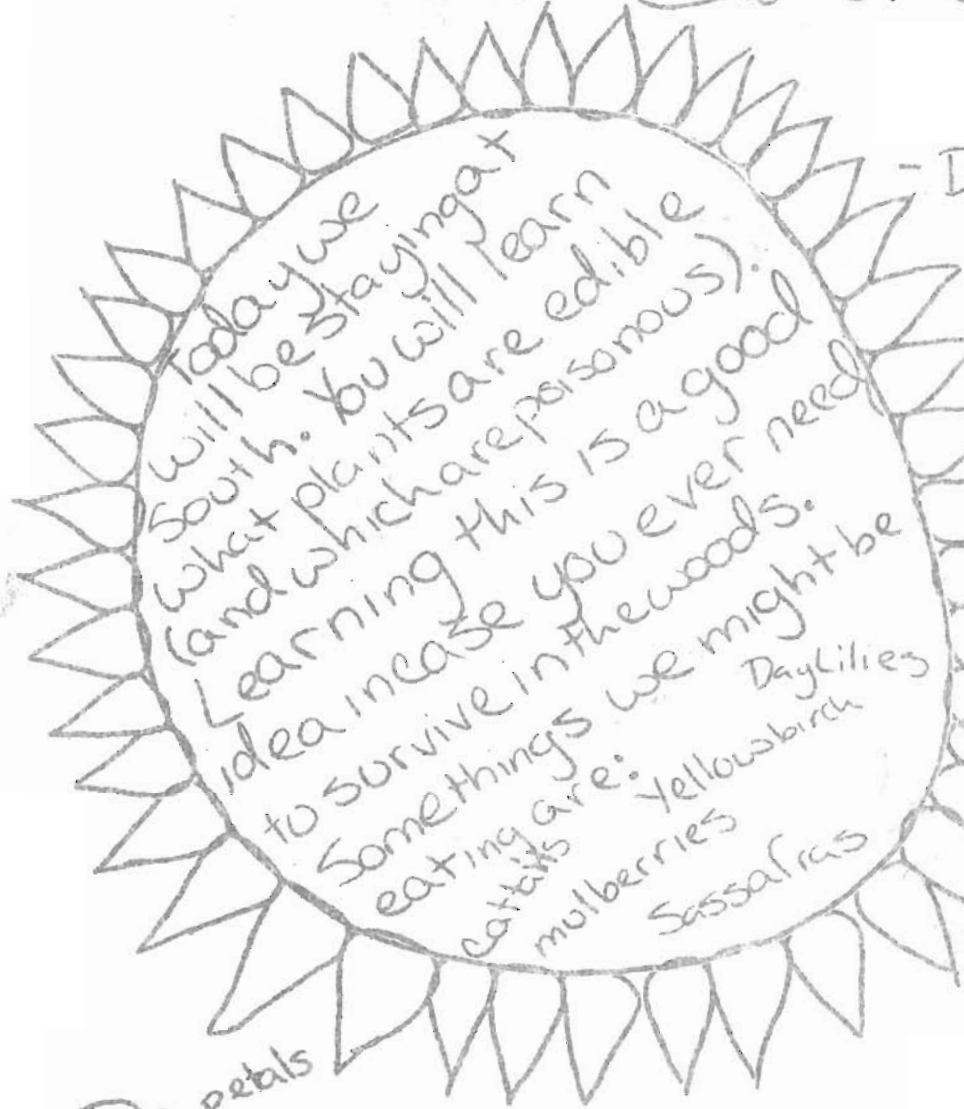 - D
Today we
will be staying at
South. You will learn
what plants are edible
(and which are poisonous).
Learning this is a good
idea incase you ever need
to survive in the woods.
Some things we might be
eating are:
Day Lilies
cattails
Yellow birch
mulberries
Sassafras
petals